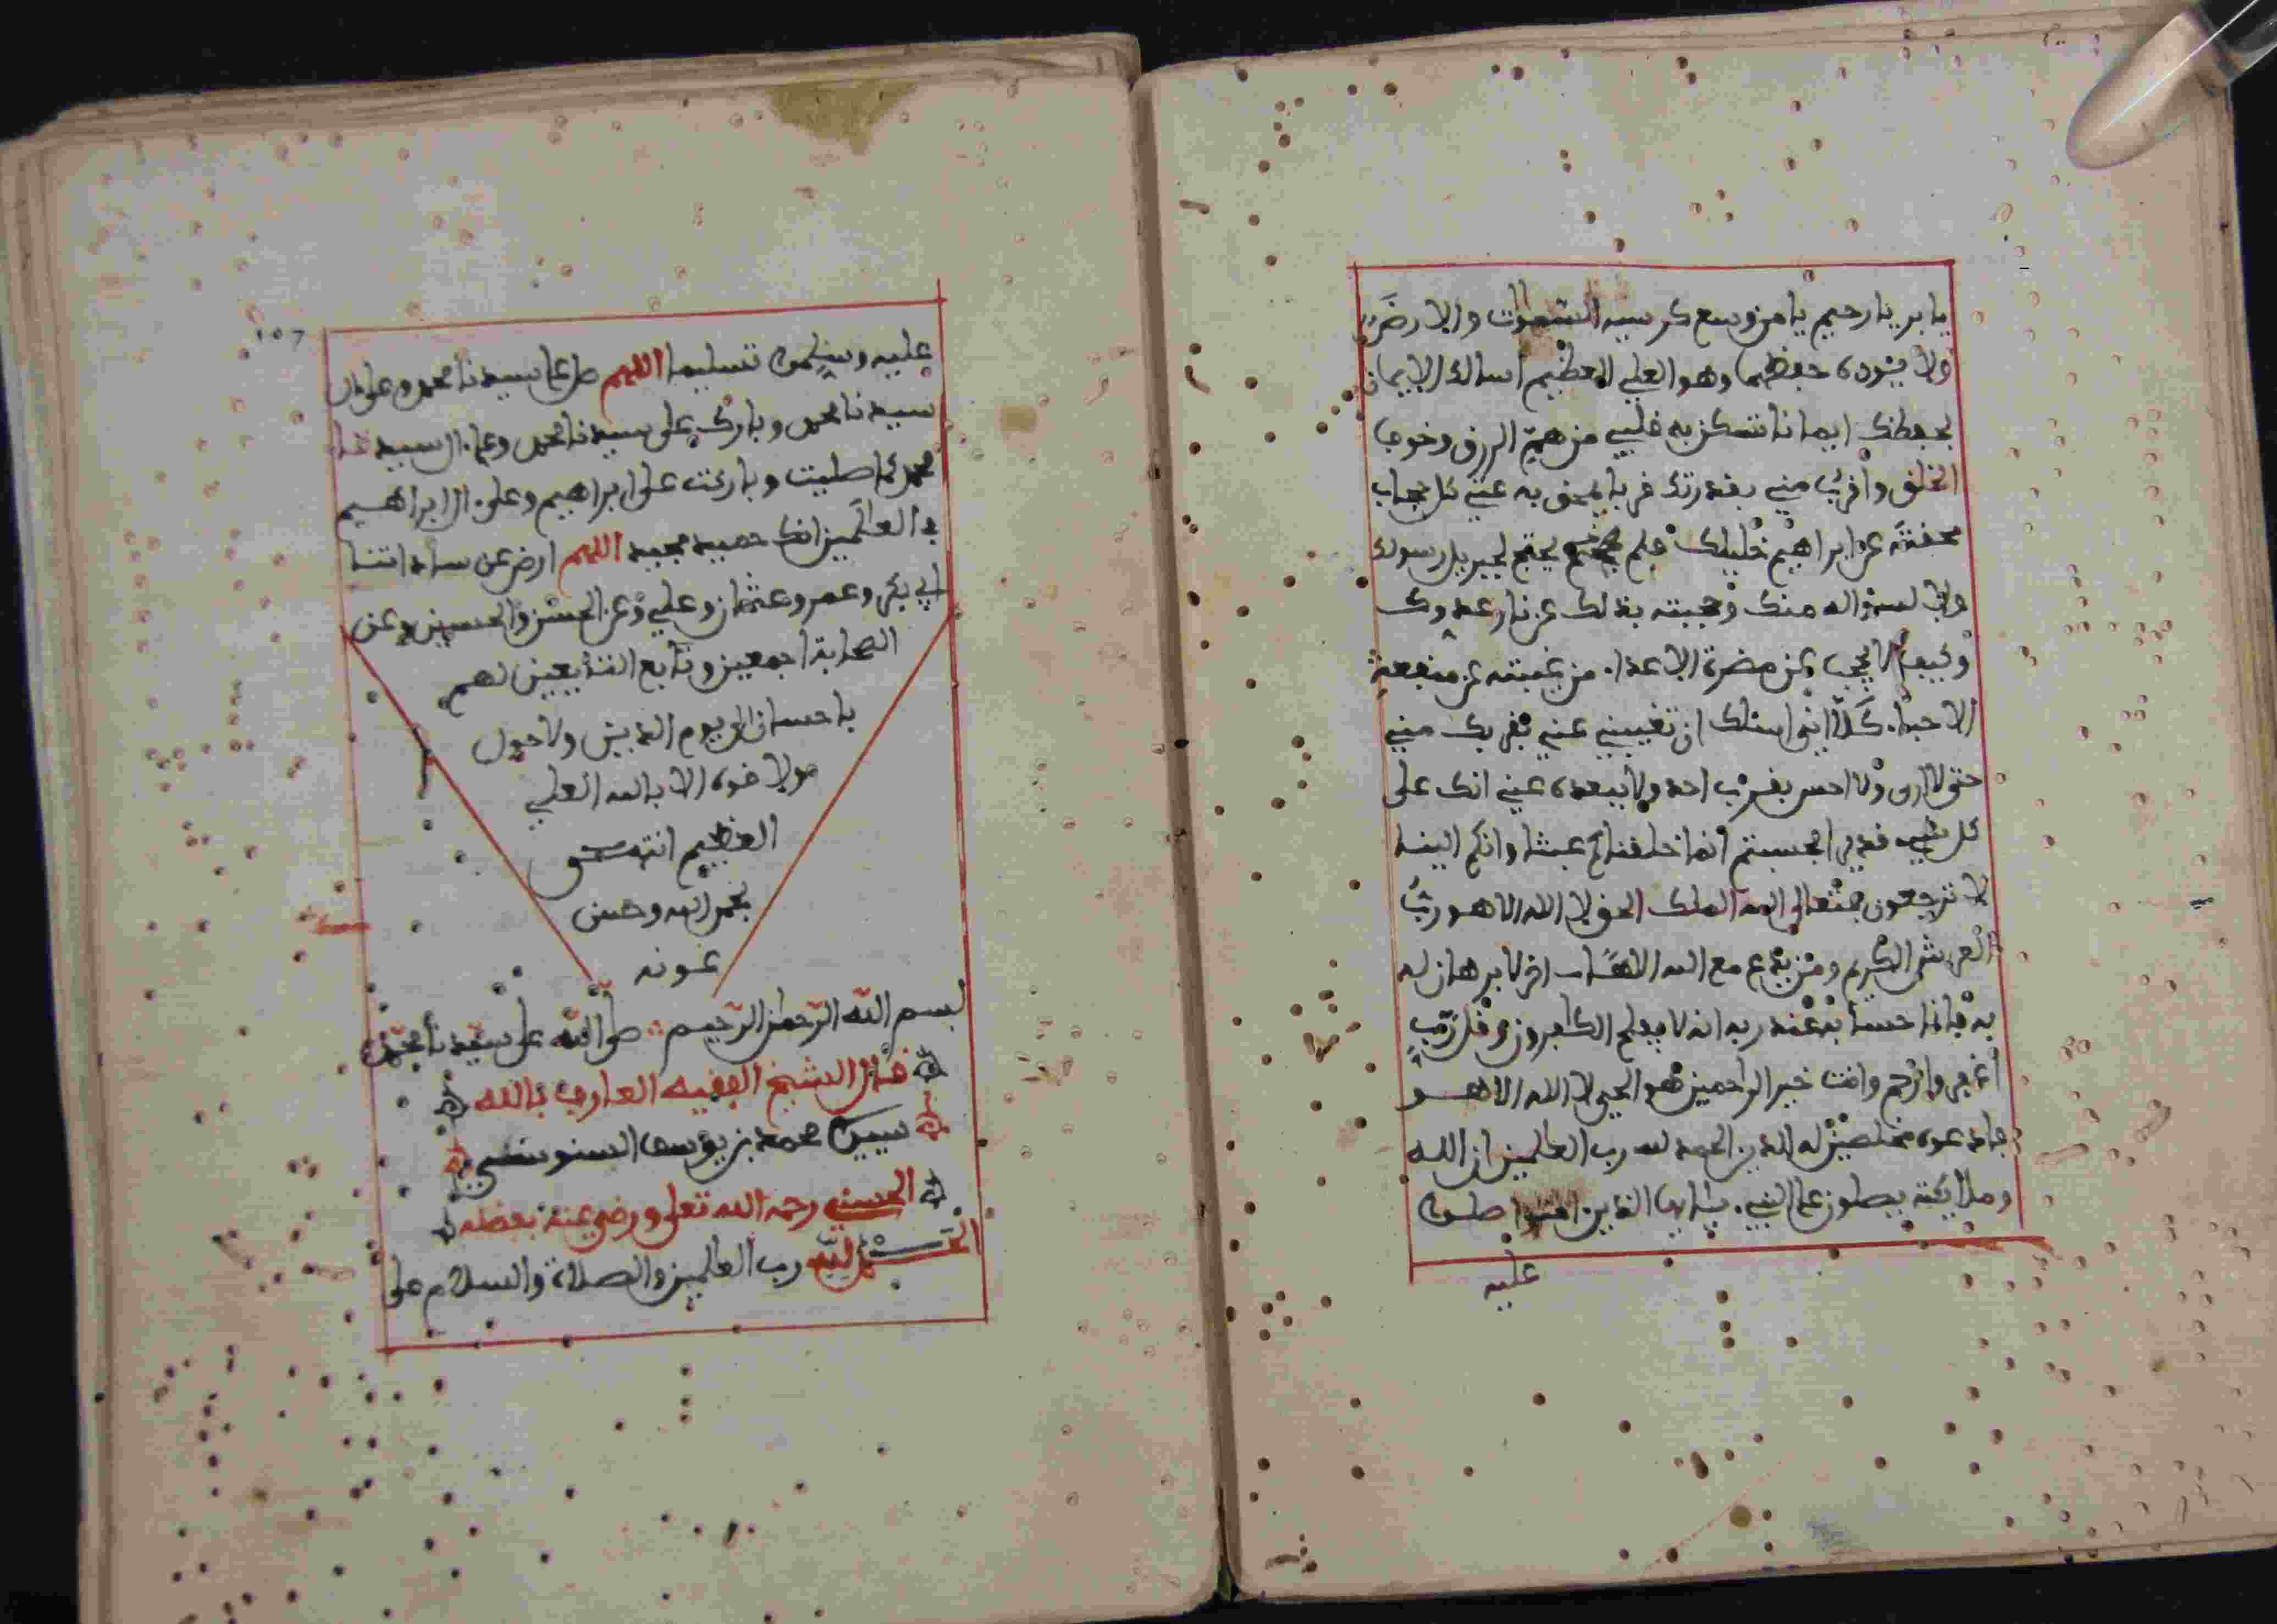 يا بر يا رحيم يا من وسع كرسيه السموات والارض
ولا يئوده حفظهما وهو العلي العظيم اسالك الايمان
بحفظك ايمانا تسكن به قلبي من هم الرزق وخوف
الخلق واقرب مني بقدرتك قربا تمحق به عني كل حجاب
محقته عن ابراهيم خليلك فلم يحتج لجبريل رسولك
ولا لسؤاله منك وحجبته بذلك عن نار عدوك
وكيف لا يحجب عن مضرة الاعداء من غيبته عن منفعة
الاحباء كلا اني اسئلك ان تغيبني عني بقربك مني
حتى لا ارى ولا احس بقرب احد ولا ببعده عني انك على
كل شيء قدير افحسبتم انما خلقناكم عبثا وانكم الينا
لا ترجعون فتعالى الله الملك الحق لا اله الا هو رب
العرش الكريم ومن يدع مع الله الاها اخر لا برهان له
به فانما حسابه عند ربه انه لا يفلح الكافرون وقل رب
اغفر وارحم وانت خير الراحمين هو الحي لا اله الا هو
فادعوه مخلصين له الدين الحمد لله رب العالمين ان الله
وملائكته يصلون على النبي يايها الذين امنوا صلوا
عليه
١٥٦
عليه وسلموا تسليما اللهم صل على سيدنا محمد وعلى ال
سيدنا محمد وبارك على سيدنا محمد وعلى ال سيدنا
محمد كما صليت وباركت على ابراهيم وعلى ال ابراهيم
في العالمين انك حميد مجيد اللهم ارض عن ساداتنا
ابي بكر وعمر وعثمان وعلي وعن الحسن والحسين وعن
الصحابة اجمعين وتابع التابعين لهم
باحسان الى يوم الدين ولا حول
ولا قوة الا بالله العلي
العظيم انتهى
بحمد الله وحسن
عونه
بسم الله الرحمن الرحيم صلى الله على سيدنا محمد
قال الشيخ الفقيه العارف بالله
سيدي محمد بن يوسف السنوسي
الحسني رحمه الله تعلى ورضي عنه بفضله
الحمد لله رب العالمين والصلاة والسلام على